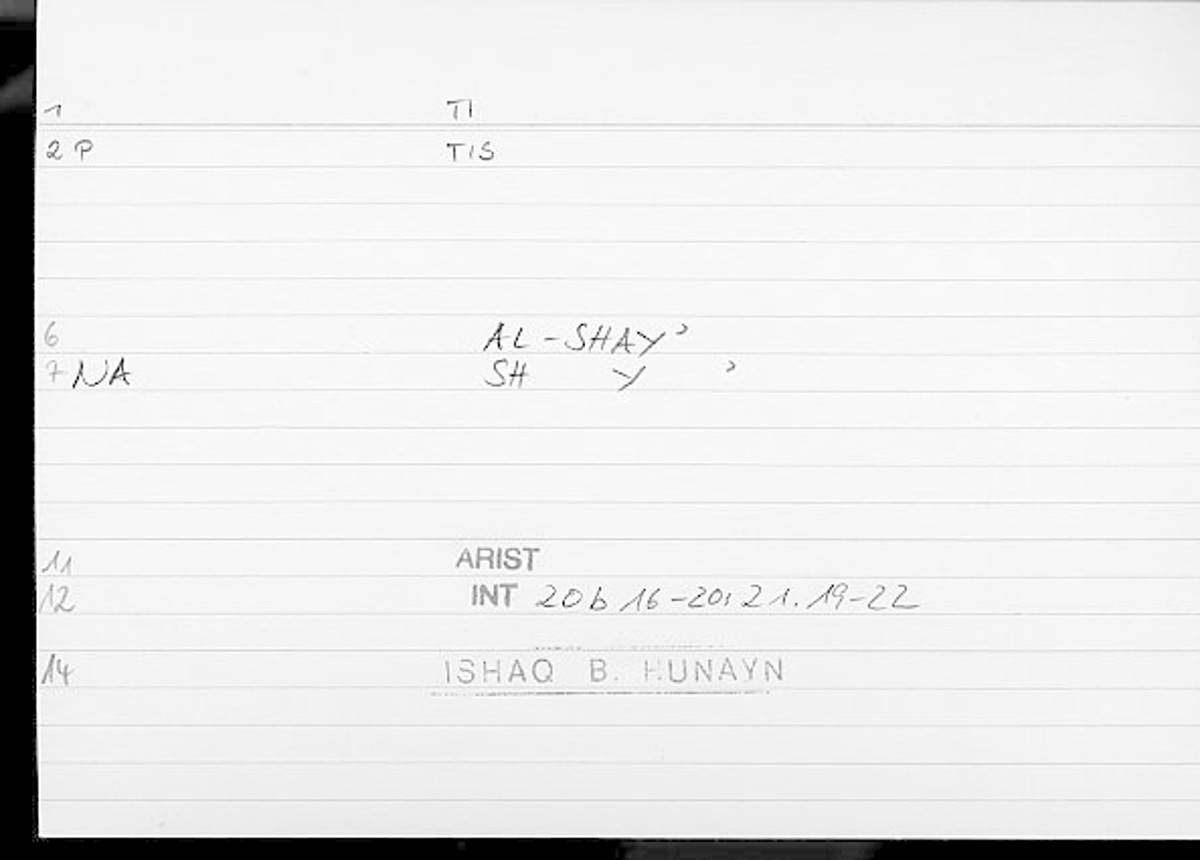 1 TI
2 P TIS
6 AL-SHAYʾ
7 NA SH Y ʾ
11 ARIST
12 INT 20b 16-20; 21. 19-22
14 ISHAQ B. HUNAYN